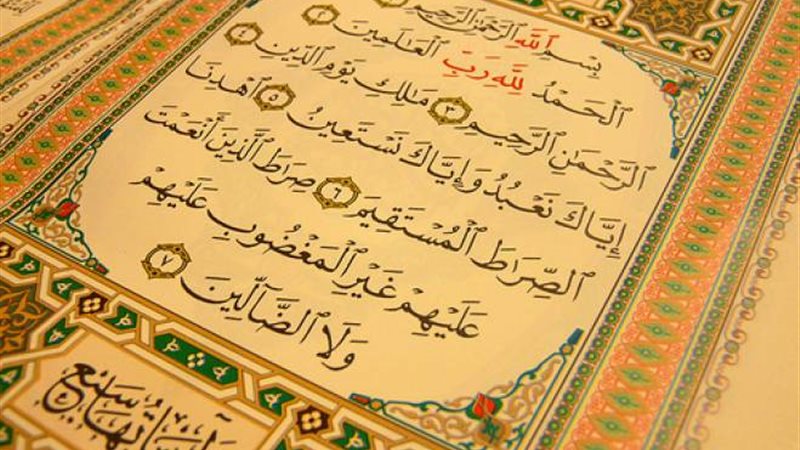 بِسْمِ ٱللَّهِ ٱلرَّحْمَٰنِ ٱلرَّحِيمِ
ٱلْحَمْدُ لِلَّهِ رَبِّ ٱلْعَٰلَمِينَ ٢
ٱلرَّحْمَٰنِ ٱلرَّحِيمِ ٣ مَٰلِكِ يَوْمِ ٱلدِّينِ ٤
إِيَّاكَ نَعْبُدُ وَإِيَّاكَ نَسْتَعِينُ ٥ ٱهْدِنَا
ٱلصِّرَٰطَ ٱلْمُسْتَقِيمَ ٦ صِرَٰطَ ٱلَّذِينَ أَنْعَمْتَ
عَلَيْهِمْ غَيْرِ ٱلْمَغْضُوبِ عَلَيْهِمْ
وَلَا ٱلضَّآلِّينَ ٧
سبع